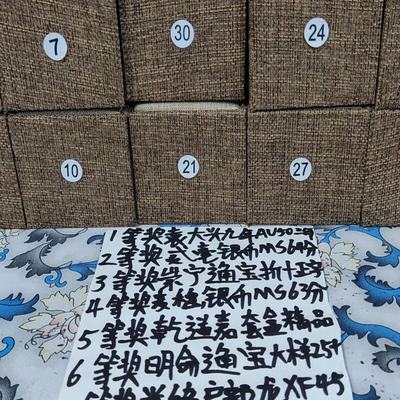 7
30
24
10
21
27
1等奖袁大头九年AU50
2等奖 银币MS64分
3等奖崇宁通宝折十
4等奖 银币MS63分
5等奖乾 嘉套盒精品
6等奖明命通宝大样25
等奖 户部 XF45